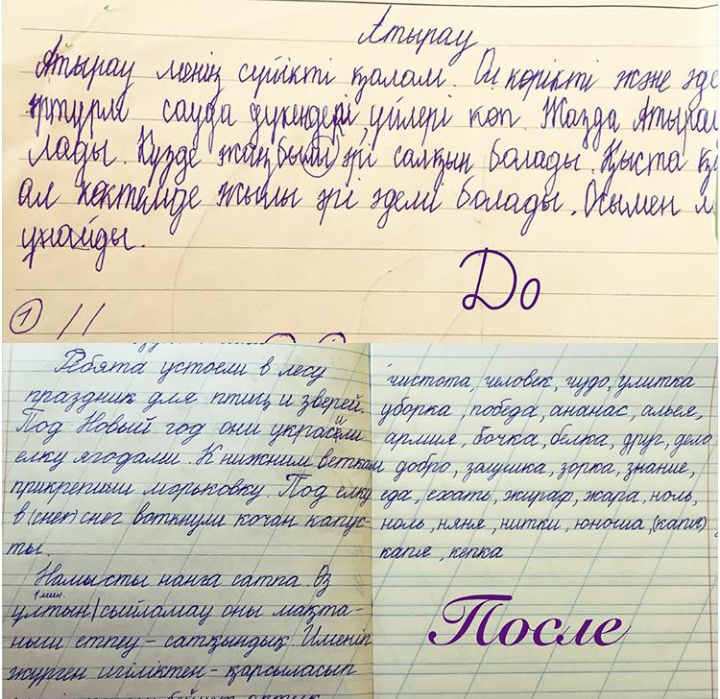 Атырау
Атырау менің сүйікті қалам. Ол көрікті және әде
ртүрлі сауда дүкендері, үйлері көп. Жазда Атырау
лады. Күзде жаңбылы әрі салқын болады. Қыста
ал көктемде жылы әрі әдемі болады. Осымен
ұнайды.
До
1 //
Ребята устоели в лесу
праздник для птиц и зверей.
Под Новый год они украсили
елку ягодами. К нижним веткам
прикрепили морьковку. Под елку
в (снег) снег воткнули кочан капус-
ты.
Намысты нанға сатпа. Өз
1 мин.
ұлтын/сыйламау оны мақта-
ныш етпеу - сатқындық. Именіп
жүрген игіліктен - қарсыласып
чистота, человек, чудо, улитка
уборка, победа, ананас, алыея,
армия, бочка, белка, друг, дело
добро, заушка, зорка, знание,
еда, ехать, жираф, жара, ноль,
ноль, няня, нитки, юноша, (капле)
капля, кепка
После